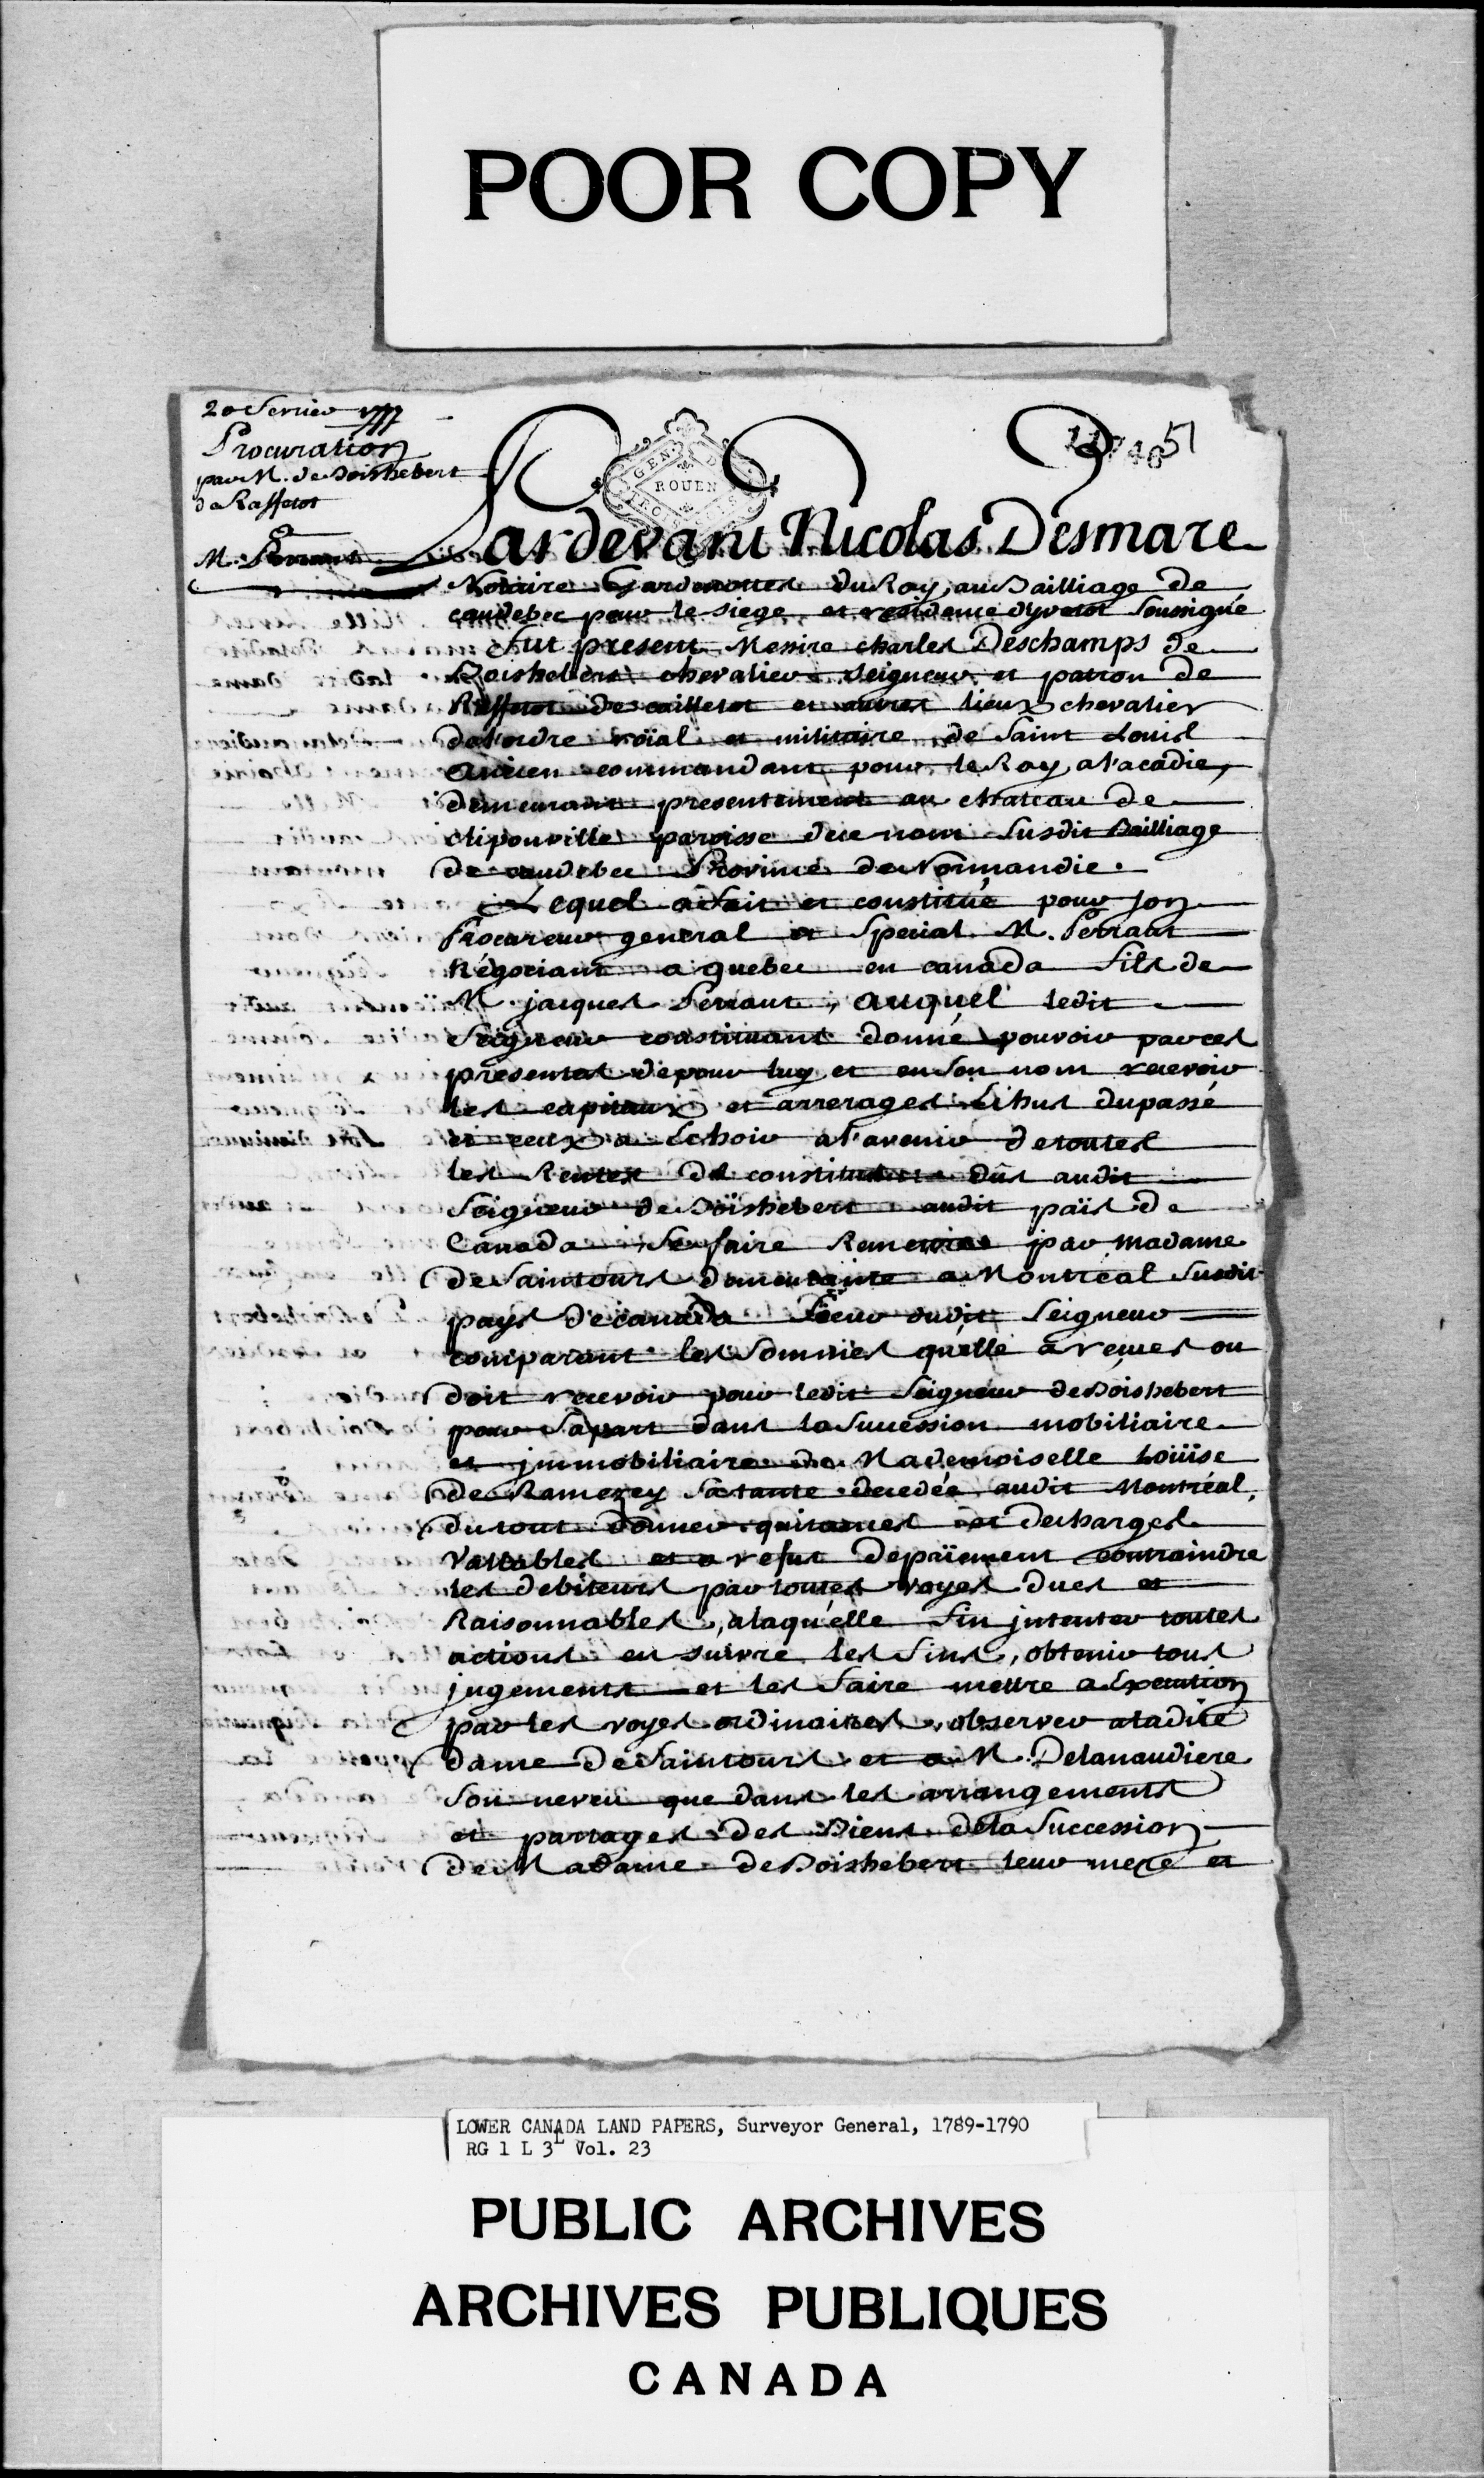 POOR COPY
20 fevrier 1777
Procuration
par M. de Boishebert
de Raffetot
a
M. Perrault
GEN. D.
ROUEN
51
Pardevant Nicolas Desmare
Notaire Gardenottes du Roy, au Bailliage de
caudebec pour le siege et residence dyvetot Soussigné
fut present Messire charles Deschamps de
Boishebert chevalier Seigneur et patron de
Raffetot de cailletot et autres lieux chevalier
de l'ordre roïal et militaire de Saint Louis
Ancien commandant pour le Roy a l'acadie,
demeurant presentement au chateau de
clipouville paroisse de ce nom Susdit Bailliage
de caudebec Province de Normandie.
Lequel a fait et constitué pour son
Procureur general et Special M. Perrault
Négociant a quebec en canada fils de
M. jacques Perrault, auquel ledit
Seigneur constituant donne pouvoir par ces
presentes de pour luy et en Son nom recevoir
les capitaux et arrerages Echus du passé
et ceux a Echoir a l'avenir de toutes
les Rentes de constitution dûs audit
Seigneur de Boishebert audit païs de
Canada Se faire Remettre par Madame
de Saintours demeurante a Montreal Susdit
pays de canada Soeur dudit Seigneur
comparant les Sommes qu'elle a reçues ou
doit recevoir pour ledit Seigneur de Boishebert
pour Sa part dans la Succession mobiliaire
et jmmobiliaire de Mademoiselle Loüise
de Ramezey Sa tante decedée audit Montréal,
du tout donner quitances et decharges
Vallables et a refus de païement contraindre
les debiteurs par toutes voyes dues et
Raisonnables, a laquelle fin jntenter toutes
actions en suivre les fins, obtenir tous
jugements et les faire mettre a Execution
par les voyes ordinaires, observer a ladite
dame de Saintours et a M. Delanaudiere
Son neveu que dans les arrangements
et partages des Biens de la Succession
de Madame de Boishebert leur mere et
LOWER CANADA LAND PAPERS, Surveyor General, 1789-1790
RG 1 L 3L Vol. 23
PUBLIC ARCHIVES
ARCHIVES PUBLIQUES
CANADA